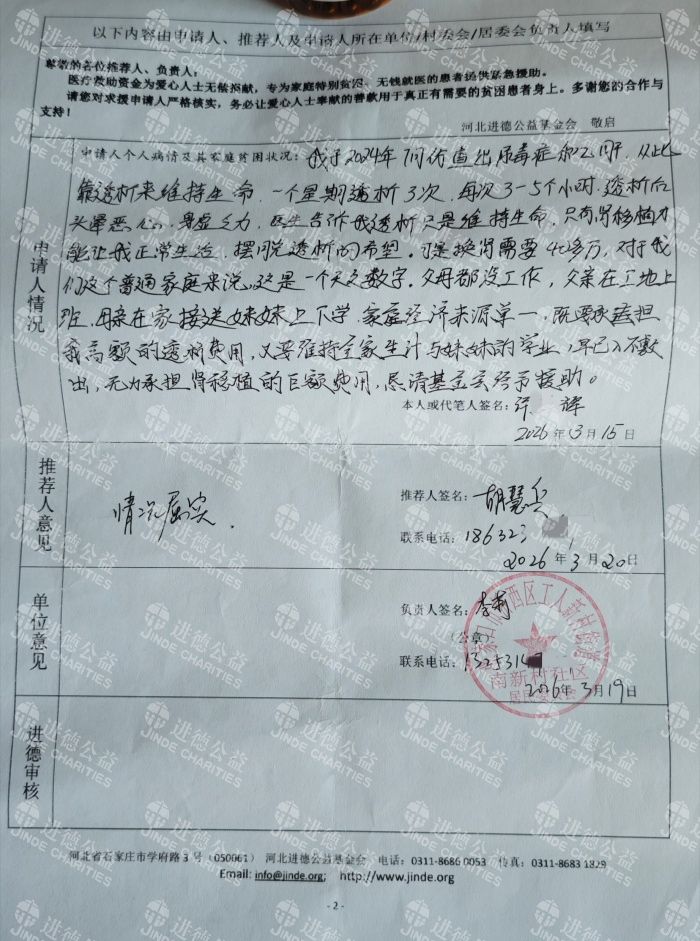 以下内容由申请人、推荐人及申请人所在单位/村委会/居委会负责人填写
尊敬的各位推荐人、负责人，
医疗救助资金为爱心人士无偿捐献，专为家庭特别贫困、无钱就医的患者提供紧急援助。
请您对求援申请人严格核实，务必让爱心人士奉献的善款用于真正有需要的贫困患者身上。多谢您的合作与
支持！
河北进德公益基金会 敬启
申请人情况
申请人个人病情及其家庭贫困状况：我于2024年 查出尿毒症 从此
靠透析来维持生命，一个星期透析3次，每次3-5个小时，透析后
头晕恶心，身虚乏力，医生告诉我透析只是维持生命，只有肾移植才
能让我正常生活，摆脱透析的希望。可是换肾需要40多万，对于我
们这个普通家庭来说，这是一个天文数字。父母都没工作，父亲在工地上
班，母亲在家接送妹妹上下学，家庭经济来源单一，既要承担
我高额的透析费用，又要维持全家生计与妹妹的学业，早已入不敷
出，无力承担肾移植的巨额费用，恳请基金会给予援助。
本人或代笔人签名：许
2026年3月15日
推荐人意见
情况属实.
推荐人签名：胡慧
联系电话：18632
2026年3月20日
单位意见
负责人签名：李
（公章）
联系电话：1325314
2026年3月19日
西区工人新村街道
南新村社区
居民委员会
进德审核
河北省石家庄市学府路3号（050061） 河北进德公益基金会 电话：0311-8686 0053 传真：0311-8683 1829
Email: info@jinde.org; http://www.jinde.org
- 2 -
进德公益
JINDE CHARITIES